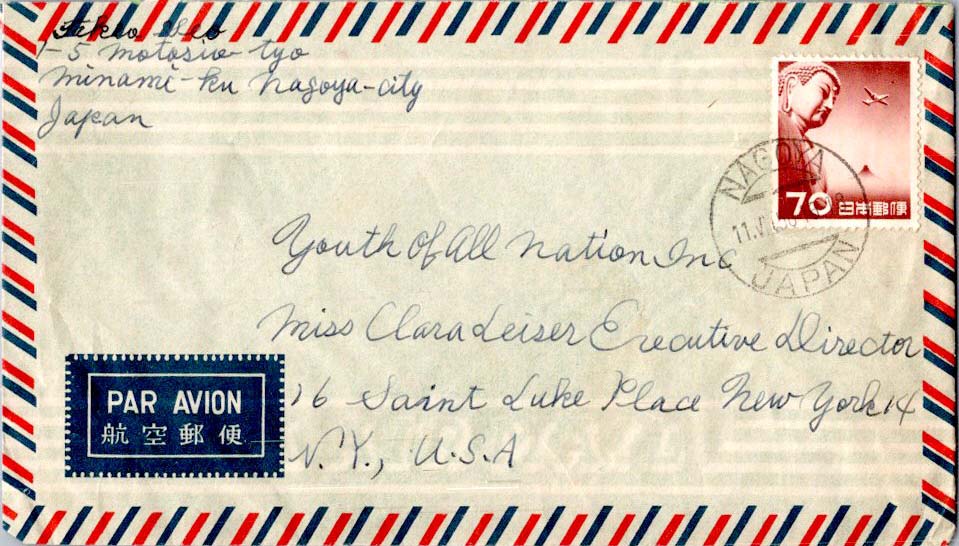 1-5 Motosio-tyo
Minami-ku Nagoya-city
Japan
70 日本郵便
NAGOYA
JAPAN
Youth of All Nation Inc
Miss Clara Leiser Executive Director
16 Saint Luke Place New York 14
N.Y., U.S.A
PAR AVION
航空郵便